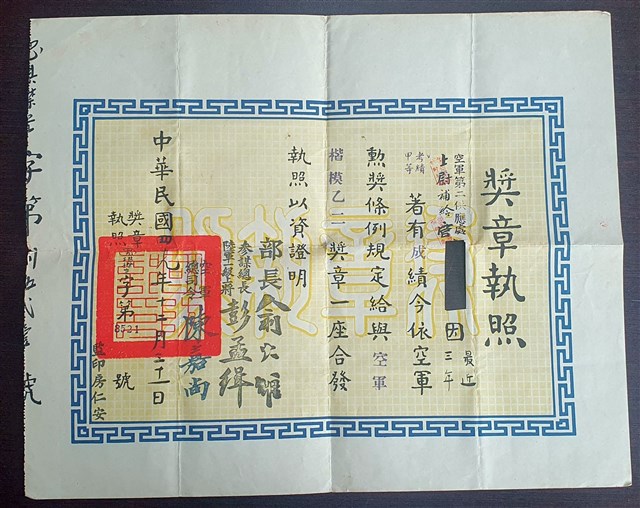 獎章執照
空軍第二供應處
上尉補給官
因
最近
三年
考績
甲等
著有成績今依空軍
勳獎條例規定給與空軍
楷模乙二獎章一座合發
執照以資證明
部長俞大維
參謀總長
陸軍一級上將
彭孟緝
空軍
總司令
陳嘉尚
中華民國四九年十二月三十一日
獎章
執照
字第
8521
號
監印房仁安
字第
號